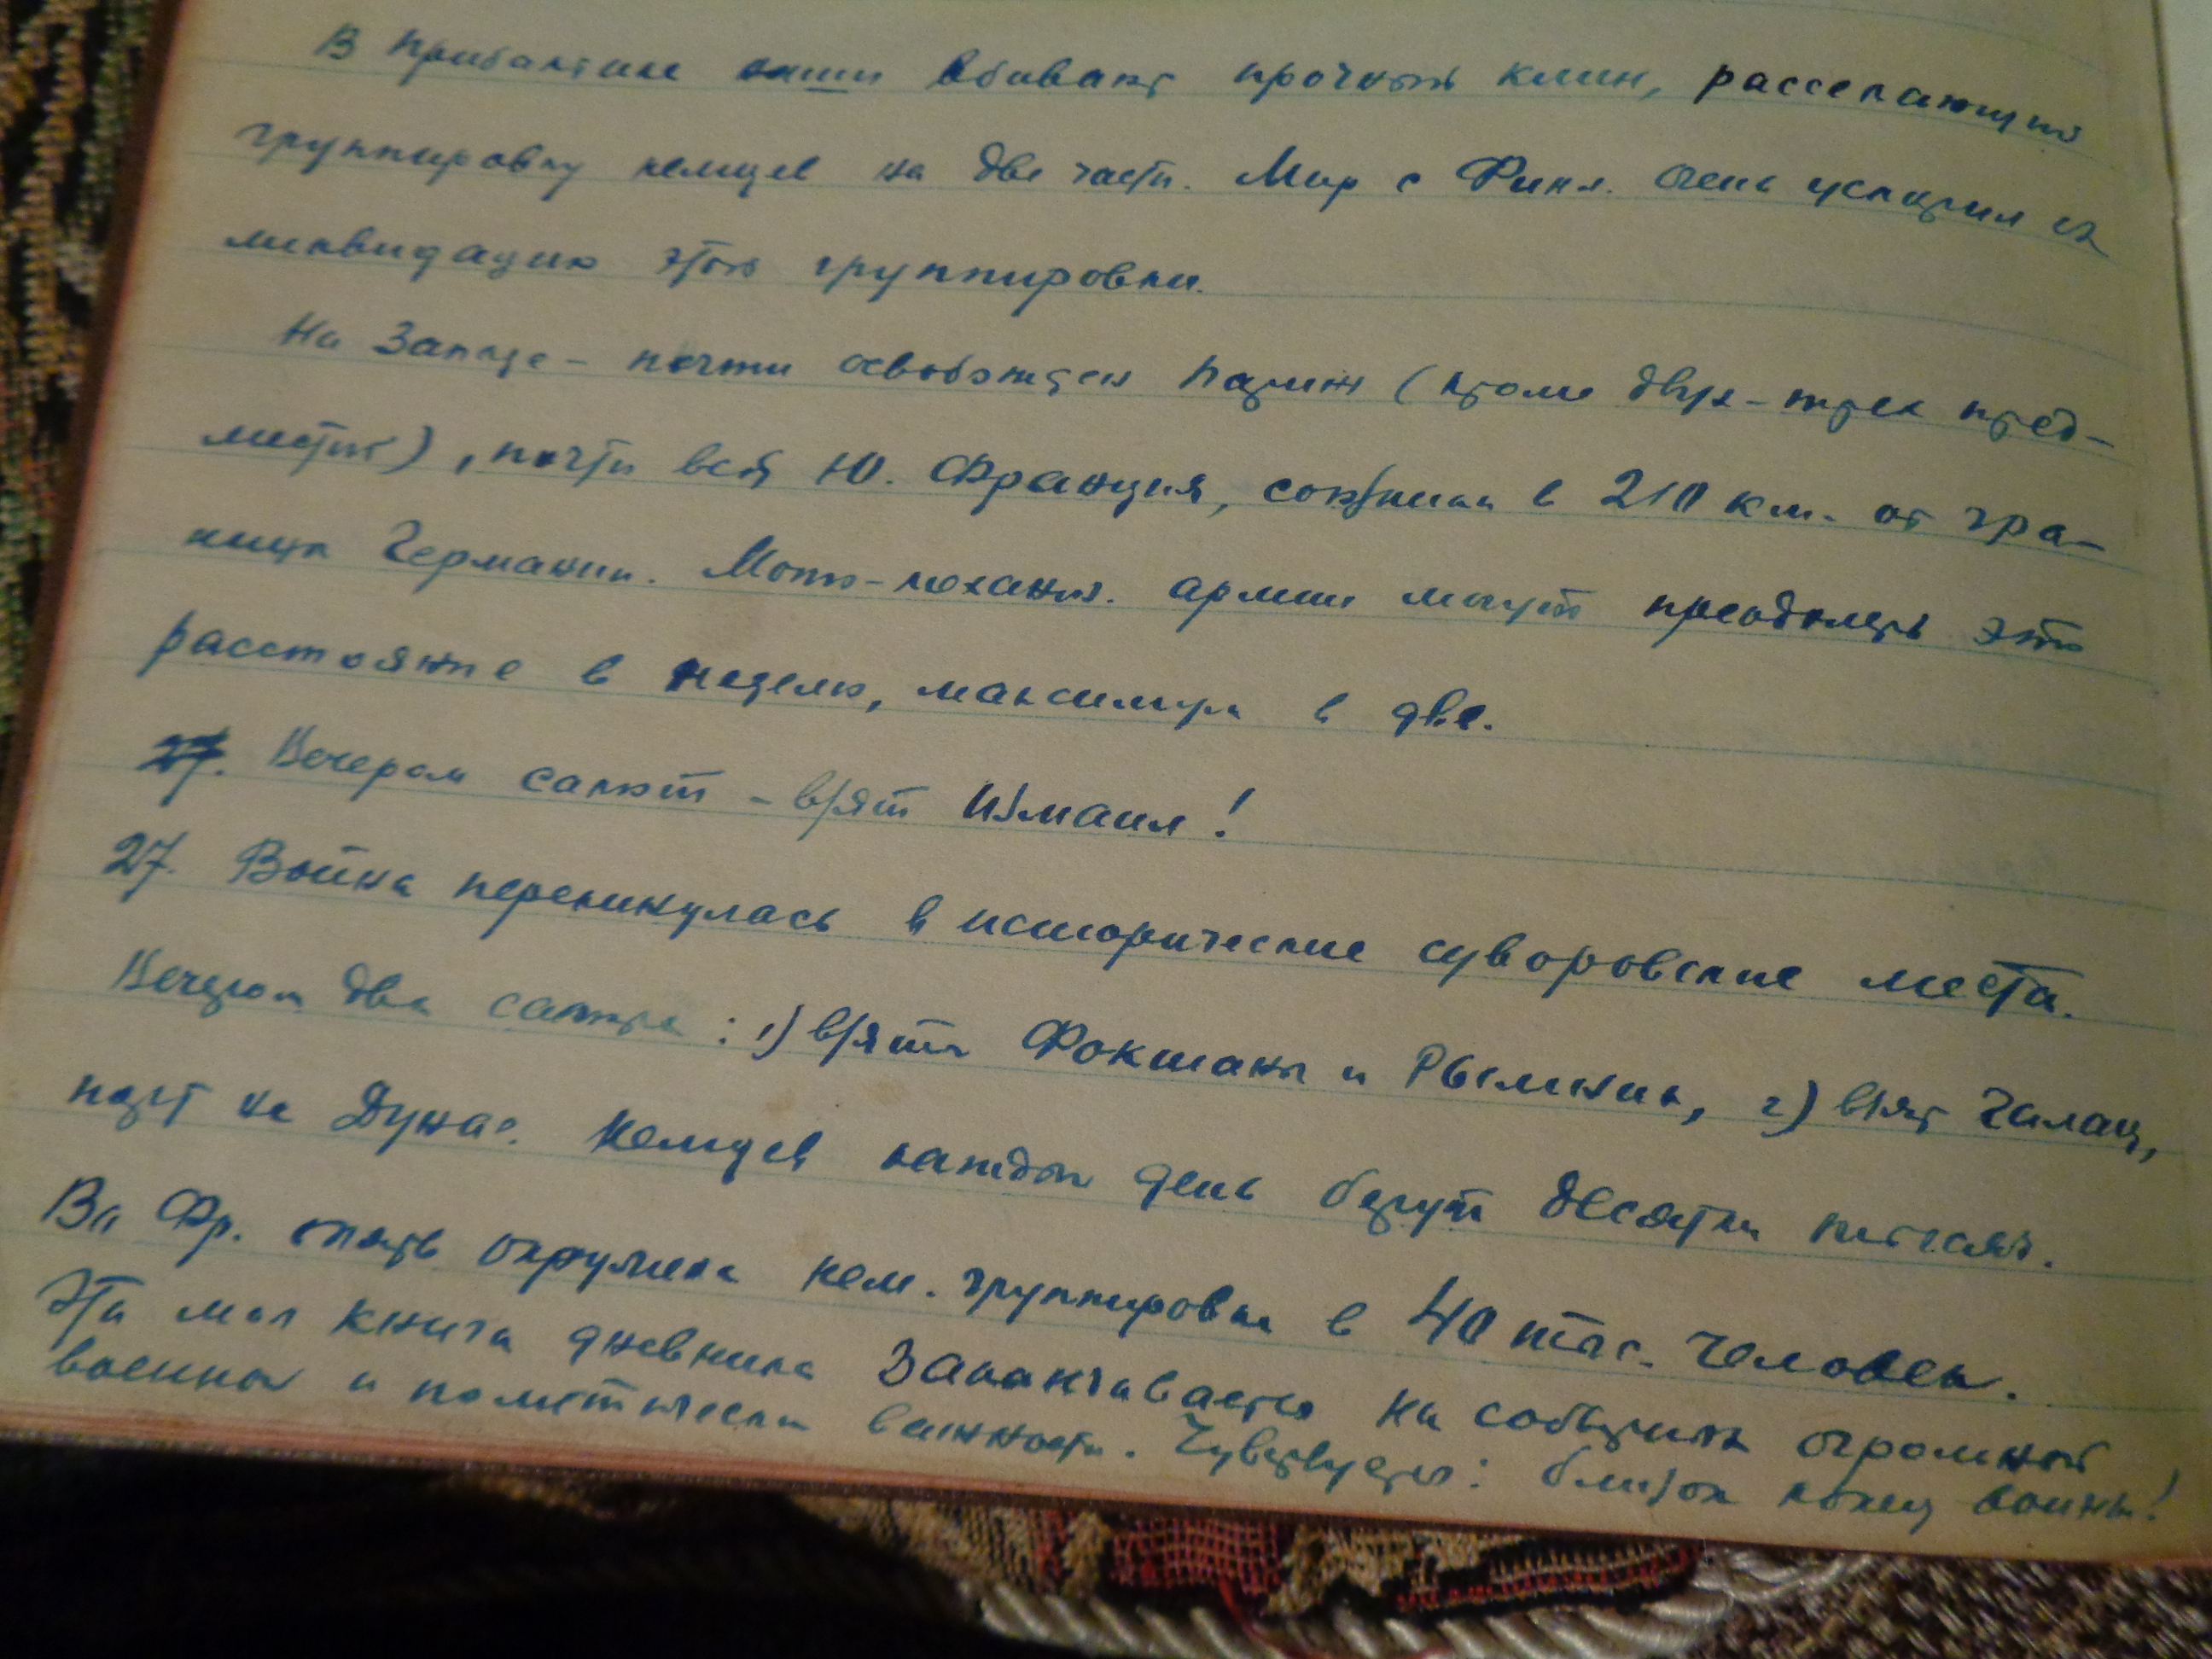 В Прибалтике наши вбивают прочный клин, рассекающий
группировку немцев на две части. Мир с Финл. очень ускорил
ликвидацию этой группировки.
На Западе – почти освобожден Париж (кроме двух-трех пред-
местий), почти вся Ю. Франция, союзники в 210 км. от гра-
ницы Германии. Мото-механич. армии могут преодолеть это
расстояние в неделю, максимум в две.
27. Вечером салют – взят Измаил!
27. Война перекинулась в исторические суворовские места.
Вечером два салюта: 1) взяты Фокшаны и Рымник, 2) взят Галац,
порт на Дунае. Немцев каждый день берут десятки тысяч.
Во Фр. опять окружена нем. группировка в 40 тыс. человек.
Эта моя книга дневника заканчивается на событиях огромной
военной и политической важности. Чувствуется: близок конец войны!